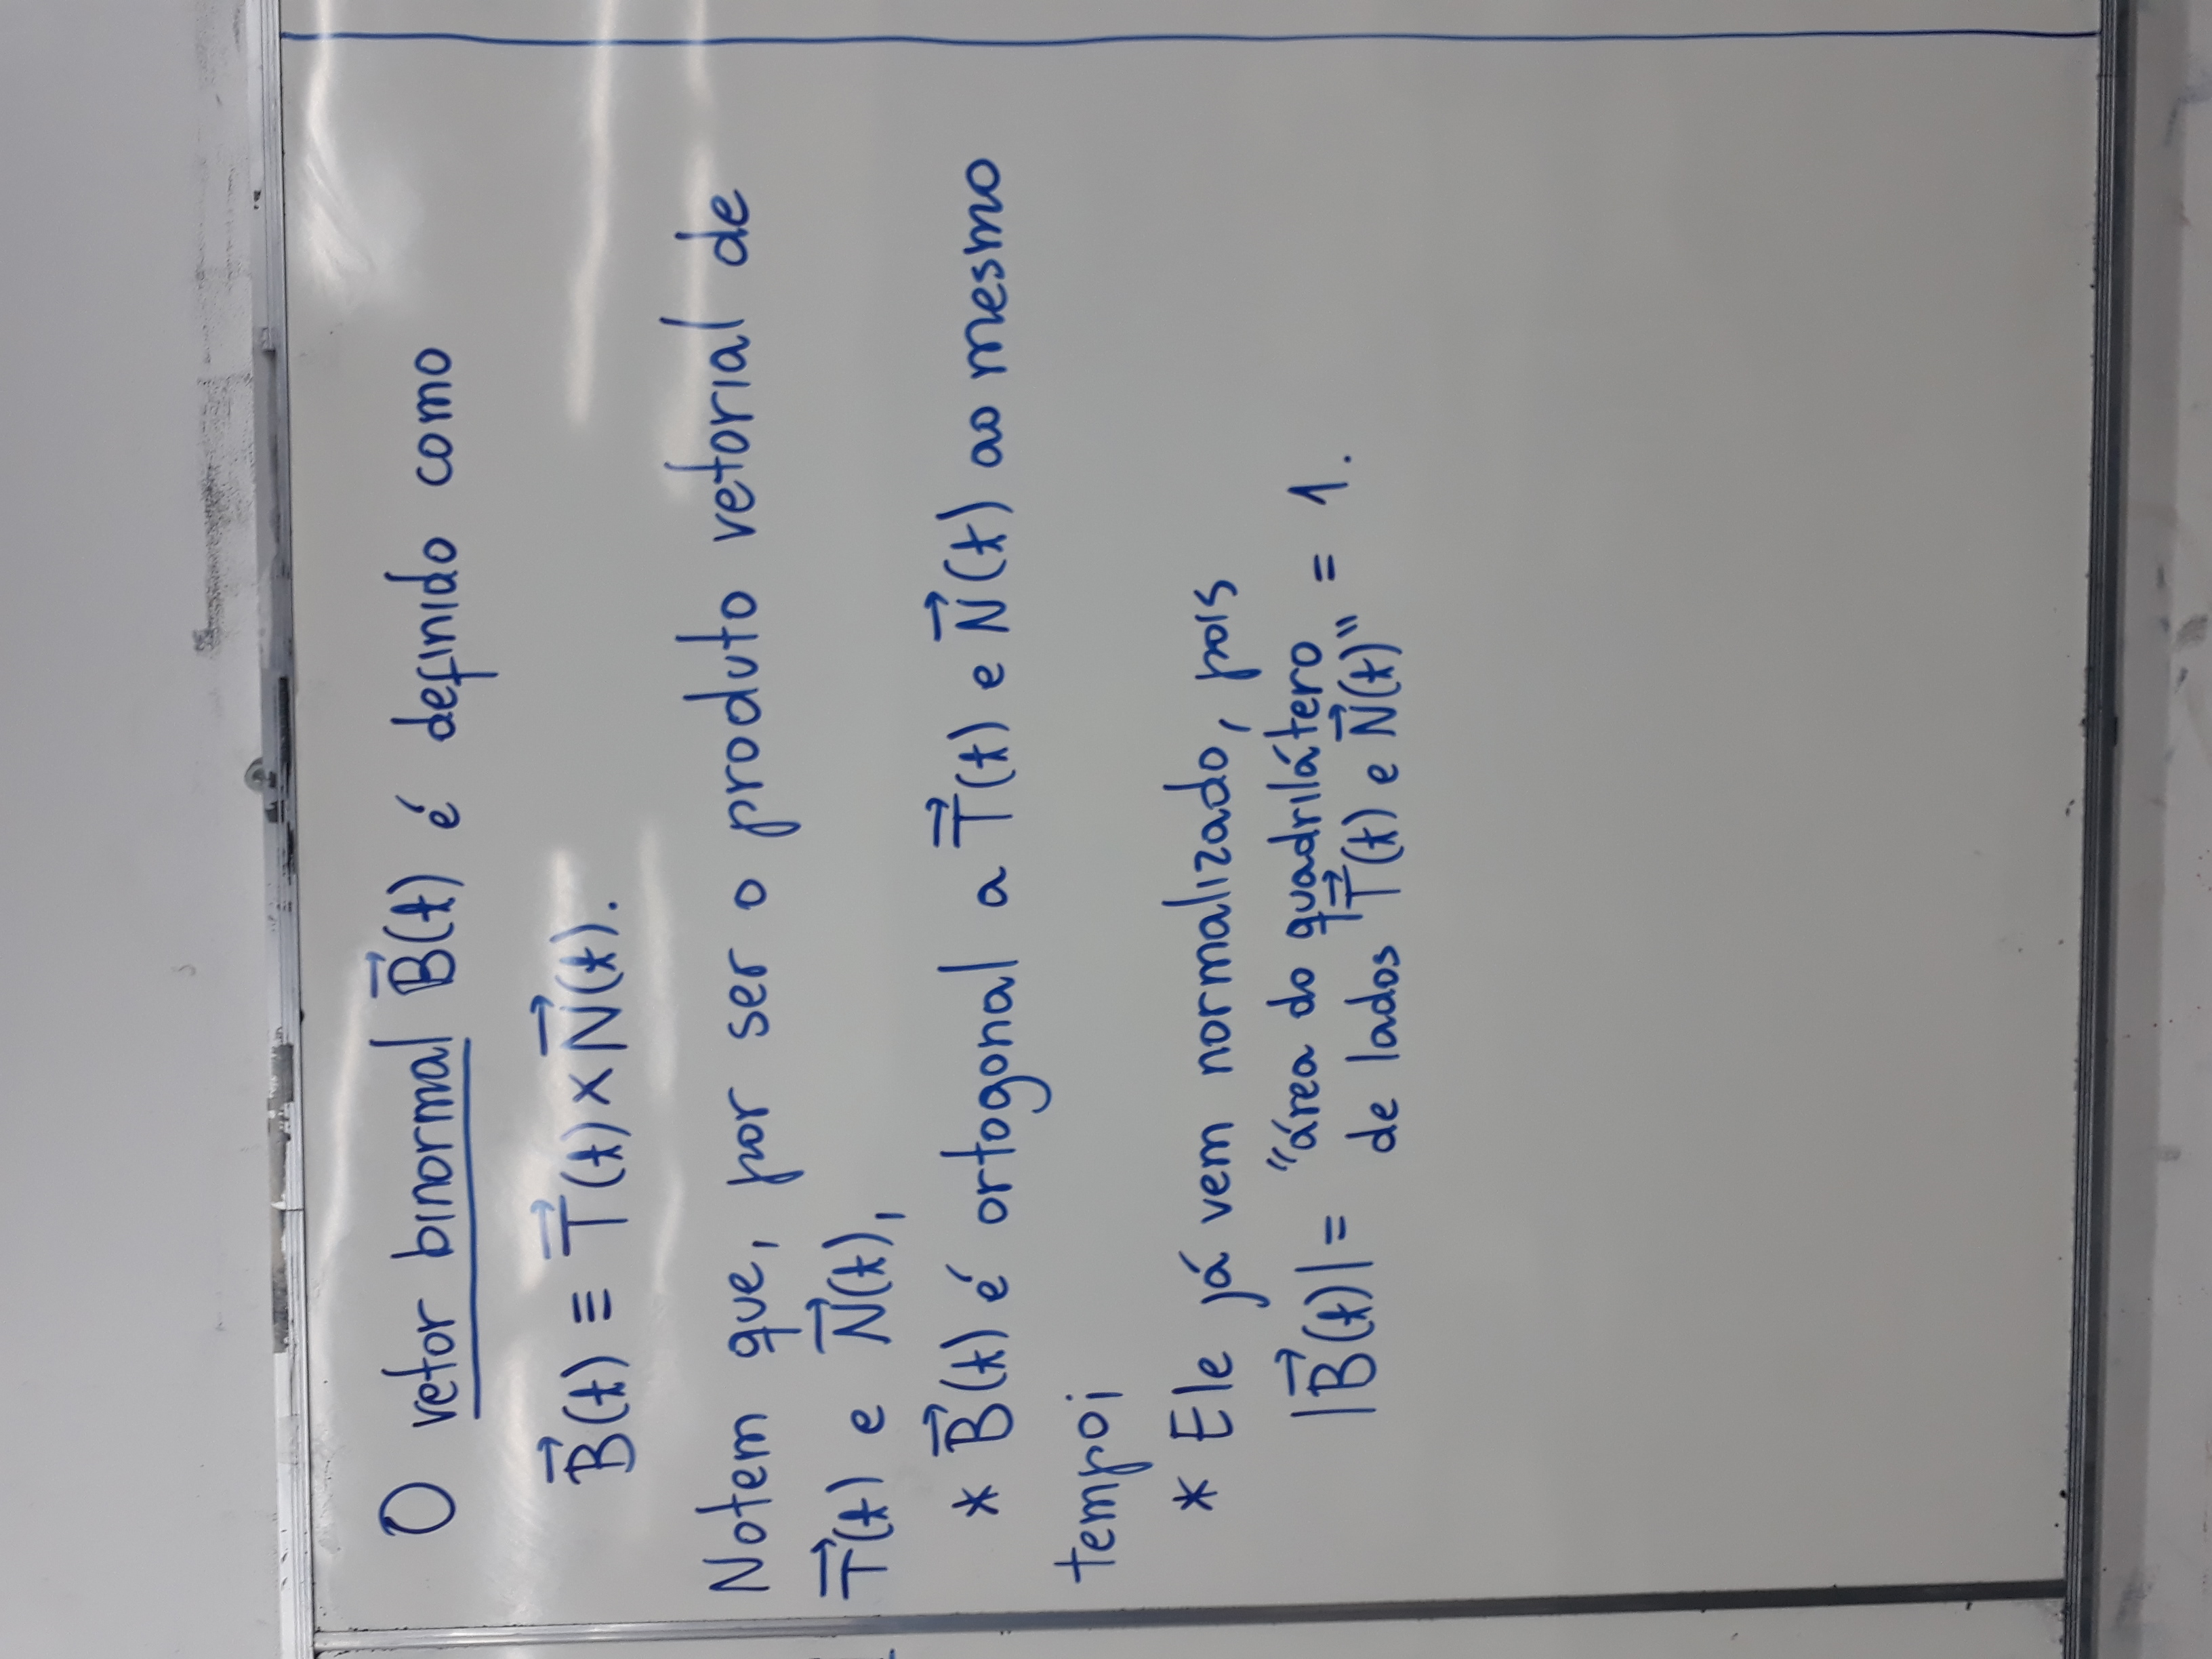 O vetor binormal B⃗(t) é definido como
B⃗(t) ≡ T⃗(t) × N⃗(t).
Notem que, por ser o produto vetorial de
T⃗(t) e N⃗(t),
* B⃗(t) é ortogonal a T⃗(t) e N⃗(t) ao mesmo
tempo;
* Ele já vem normalizado, pois
|B⃗(t)| = "área do quadrilátero
de lados T⃗(t) e N⃗(t)" = 1.